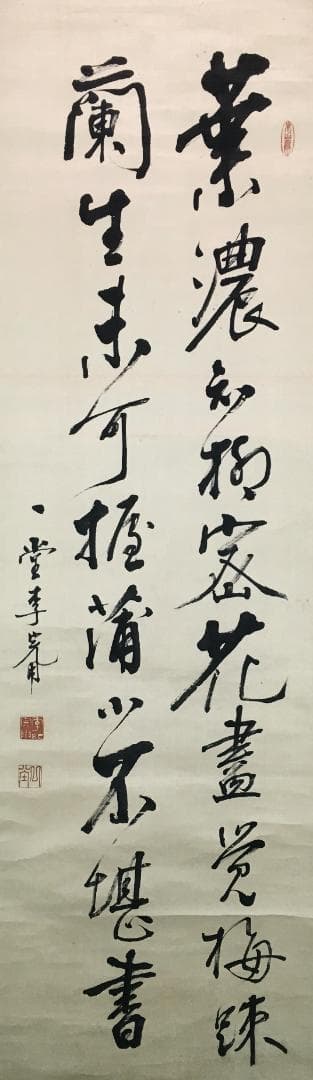 葉濃知柳密花盡覺梅踈
蘭生未可握蒲小不堪書
一堂李